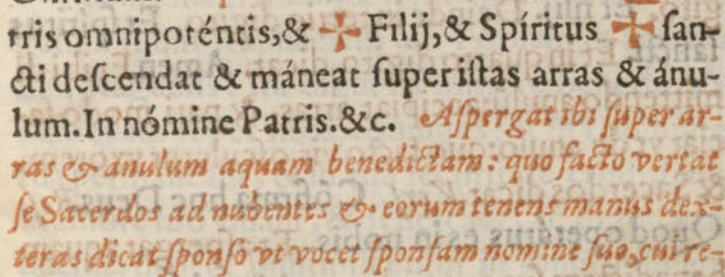 tris omnipoténtis,& ✠ Filij,& Spíritus ✠ ſan-
cti deſcendat & máneat ſuper iſtas arras & ánu-
lum.In nómine Patris.&c. Aſpergat ibi ſuper ar-
ras & anulum aquam benedictam: quo facto vertat
ſe Sacerdos ad nubentes & eorum tenens manus dex-
teras dicat ſponſo vt vocet ſponſam nomine ſuo,cui re-